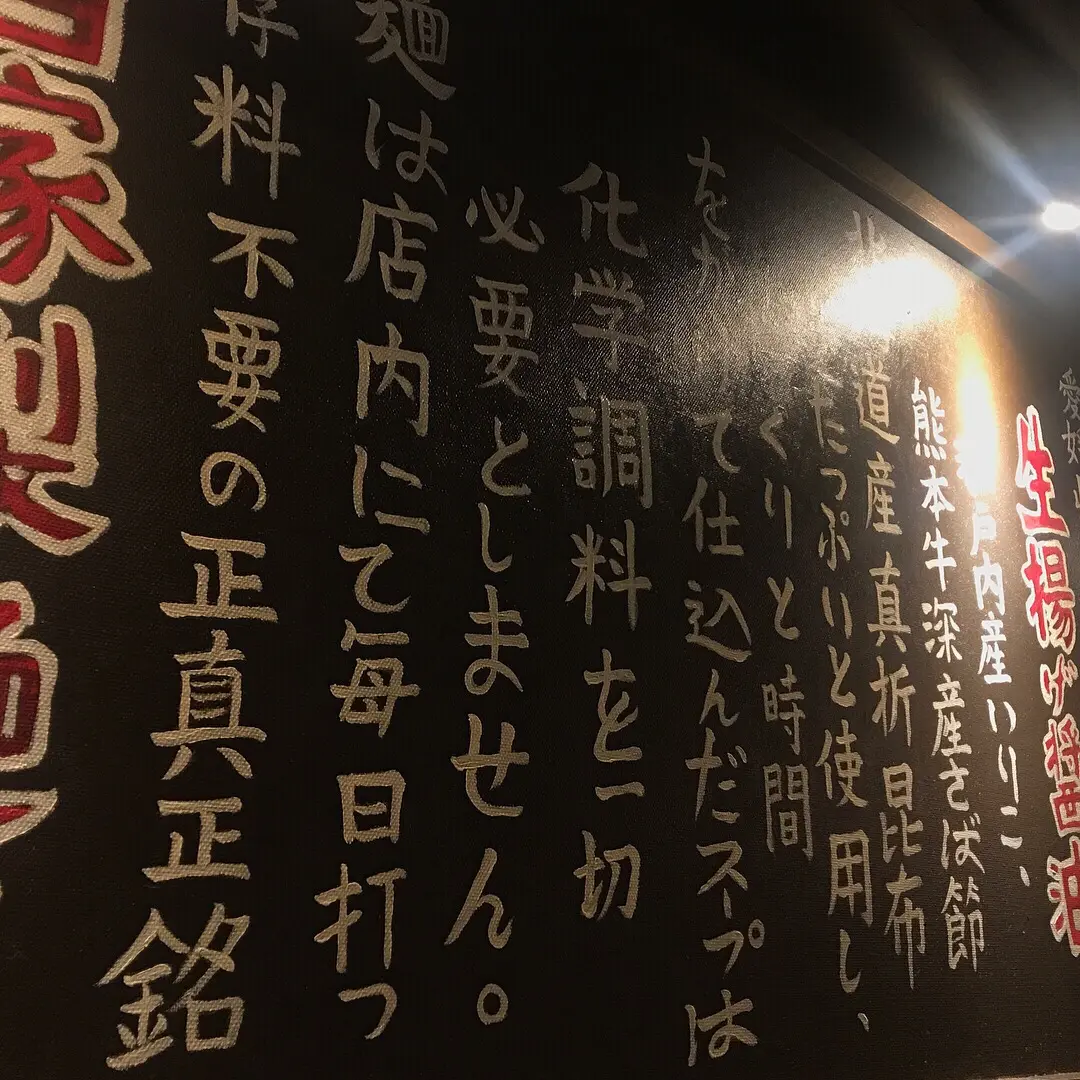 生揚げ醤油
戸内産いりこ、
熊本牛深産さば節
道産真折昆布
たっぷりと使用し、
くりと時間
をか て仕込んだスープは
化学調料を一切
必要としません。
麺は店内にて毎日打つ
料不要の正真正銘
家製